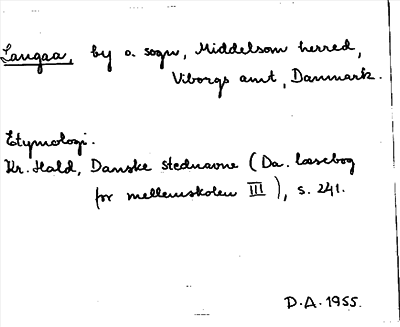 Langaa, by o. sogn, Middelsom herred,
Viborgs amt, Danmark.
Etymologi.
Kr. Hald, Danske stednavne (Da. læsebog
for mellemskolen III), s. 241.
D.A. 1955.